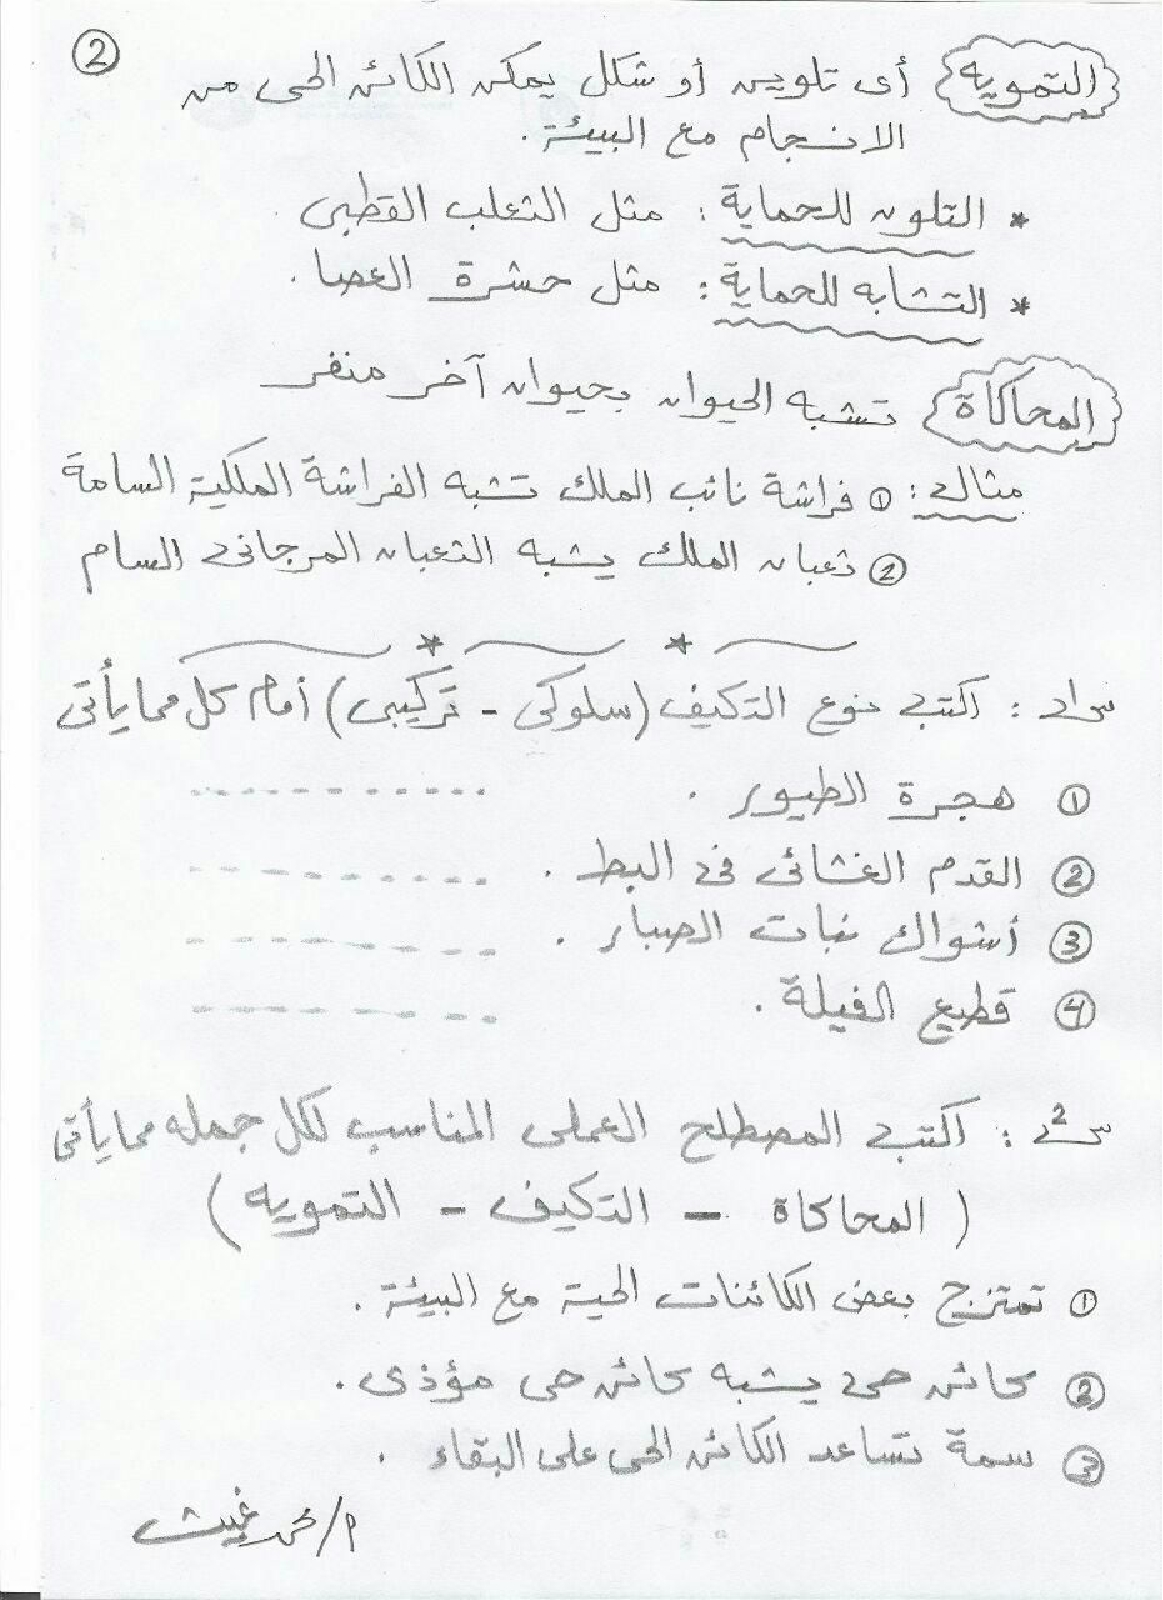 2
التمويه أى تلوين أو شكل يمكن الكائن الحى من
الانسجام مع البيئة .
* التلون للحماية : مثل الثعلب القطبى .
* التشابه للحماية : مثل حشرة العصا .
المحاكاة تشبه الحيوان بحيوان آخر منفر
مثال : ① فراشة نائب الملك تشبه الفراشة الملكية السامة
② ثعبان الملك يشبه الثعبان المرجانى السام
س1 : اكتب نوع التكيف (سلوكى - تركيبى) أمام كل مما يأتى
① هجرة الطيور . - - - - - - - - - -
② القدم الغشائى فى البط . - - - - - - - - -
③ أشواك نبات الصبار . - - - - - - - -
④ قطيع الفيلة . - - - - - - - -
س2 : اكتب المصطلح العملى المناسب لكل جمله مما يأتى
( المحاكاة - التكيف - التمويه )
① تمتزج بعض الكائنات الحية مع البيئة .
② كائن حى يشبه كائن حى مؤذى .
③ سمة تساعد الكائن الحى على البقاء .
م/محمد غيث